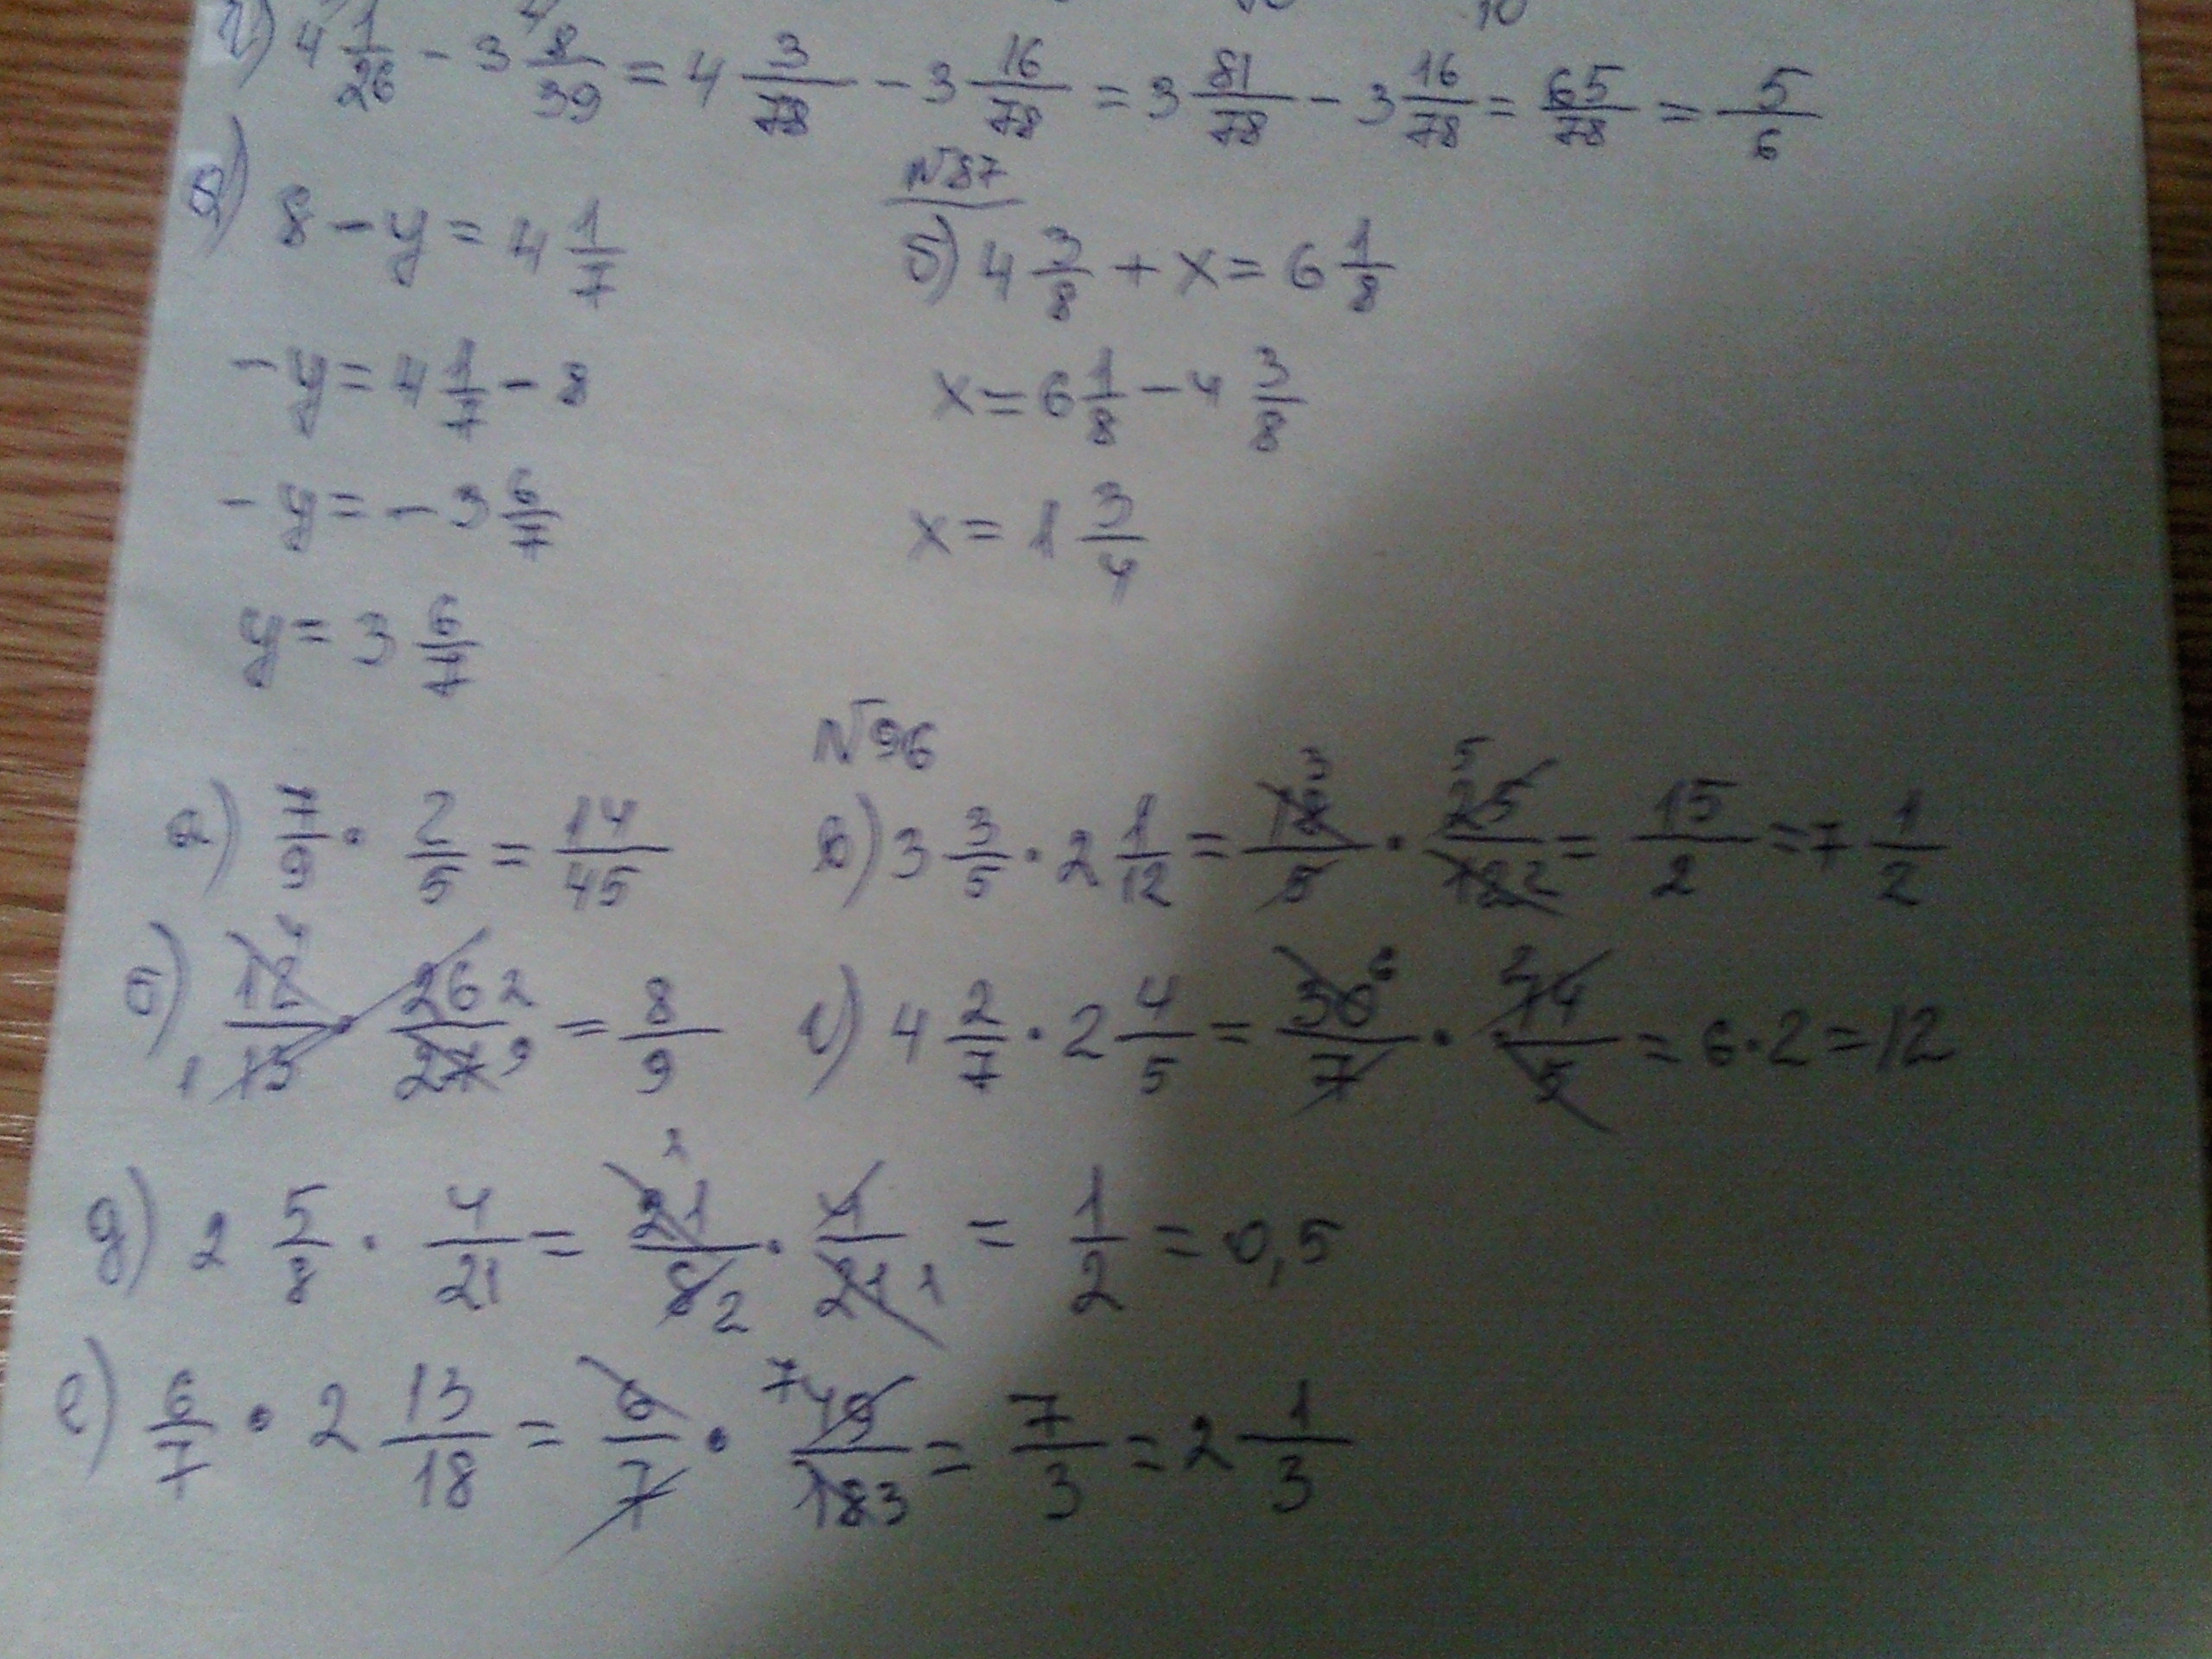 г) 4 1/26 - 3 8/39 = 4 3/78 - 3 16/78 = 3 81/78 - 3 16/78 = 65/78 = 5/6
№87
а) 8 - y = 4 1/7
-y = 4 1/7 - 8
-y = -3 6/7
y = 3 6/7
б) 4 3/8 + x = 6 1/8
x = 6 1/8 - 4 3/8
x = 1 3/4
№96
а) 7/9 · 2/5 = 14/45
в) 3 3/5 · 2 1/12 = 18/5 · 25/12 = 15/2 = 7 1/2
б) 12/13 · 26/27 = 8/9
г) 4 2/7 · 2 4/5 = 30/7 · 14/5 = 6 · 2 = 12
д) 2 5/8 · 4/21 = 21/8 · 4/21 = 1/2 = 0,5
е) 6/7 · 2 13/18 = 6/7 · 49/18 = 7/3 = 2 1/3